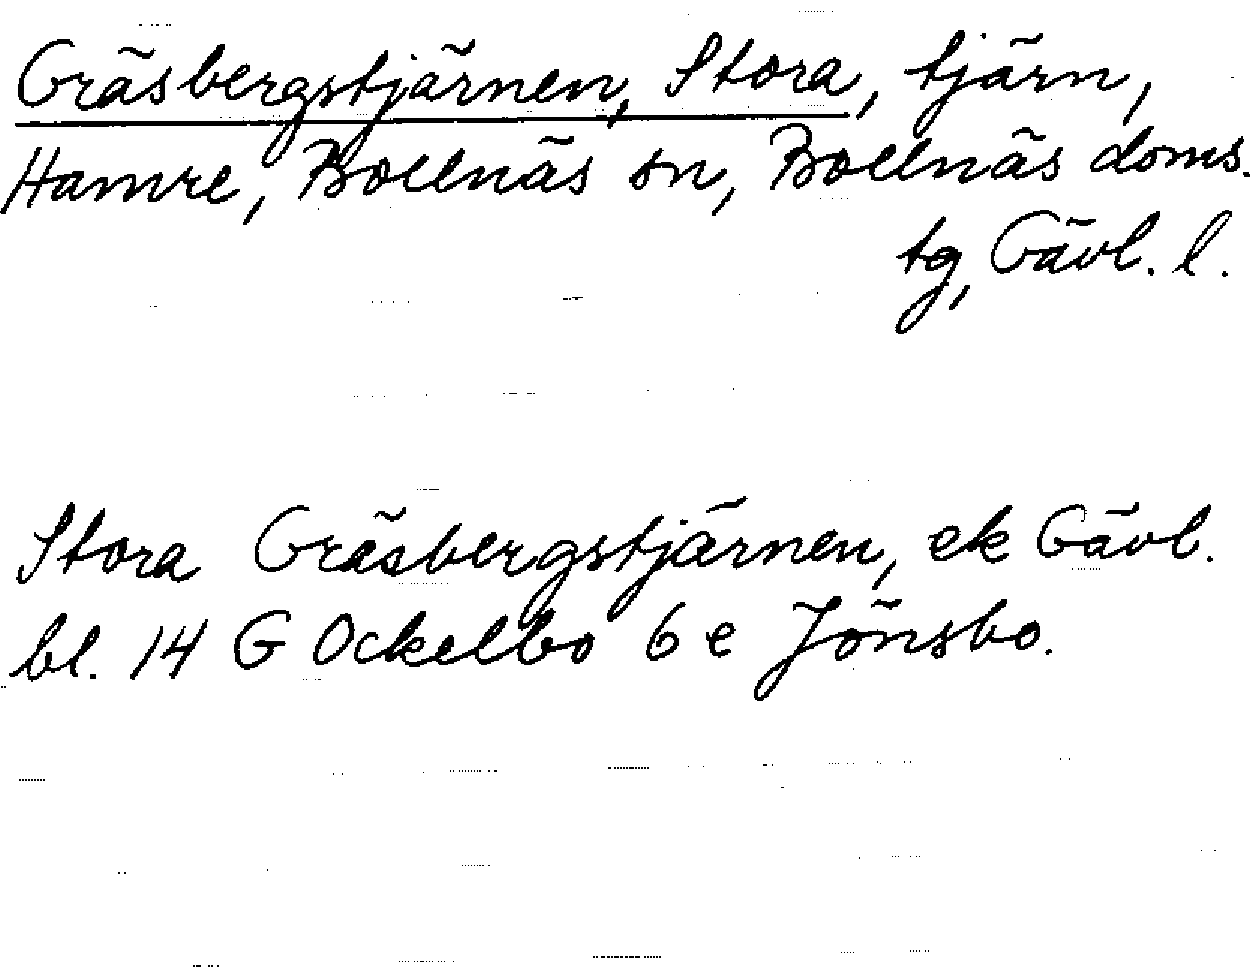 Gräsbergstjärnen, Stora, tjärn,
Hamre, Bollnäs sn, Bollnäs doms.
tg, Gävl. l.
Stora Gräsbergstjärnen, ek Gävl.
bl. 14 G Ockelbo 6 e Jönsbo.